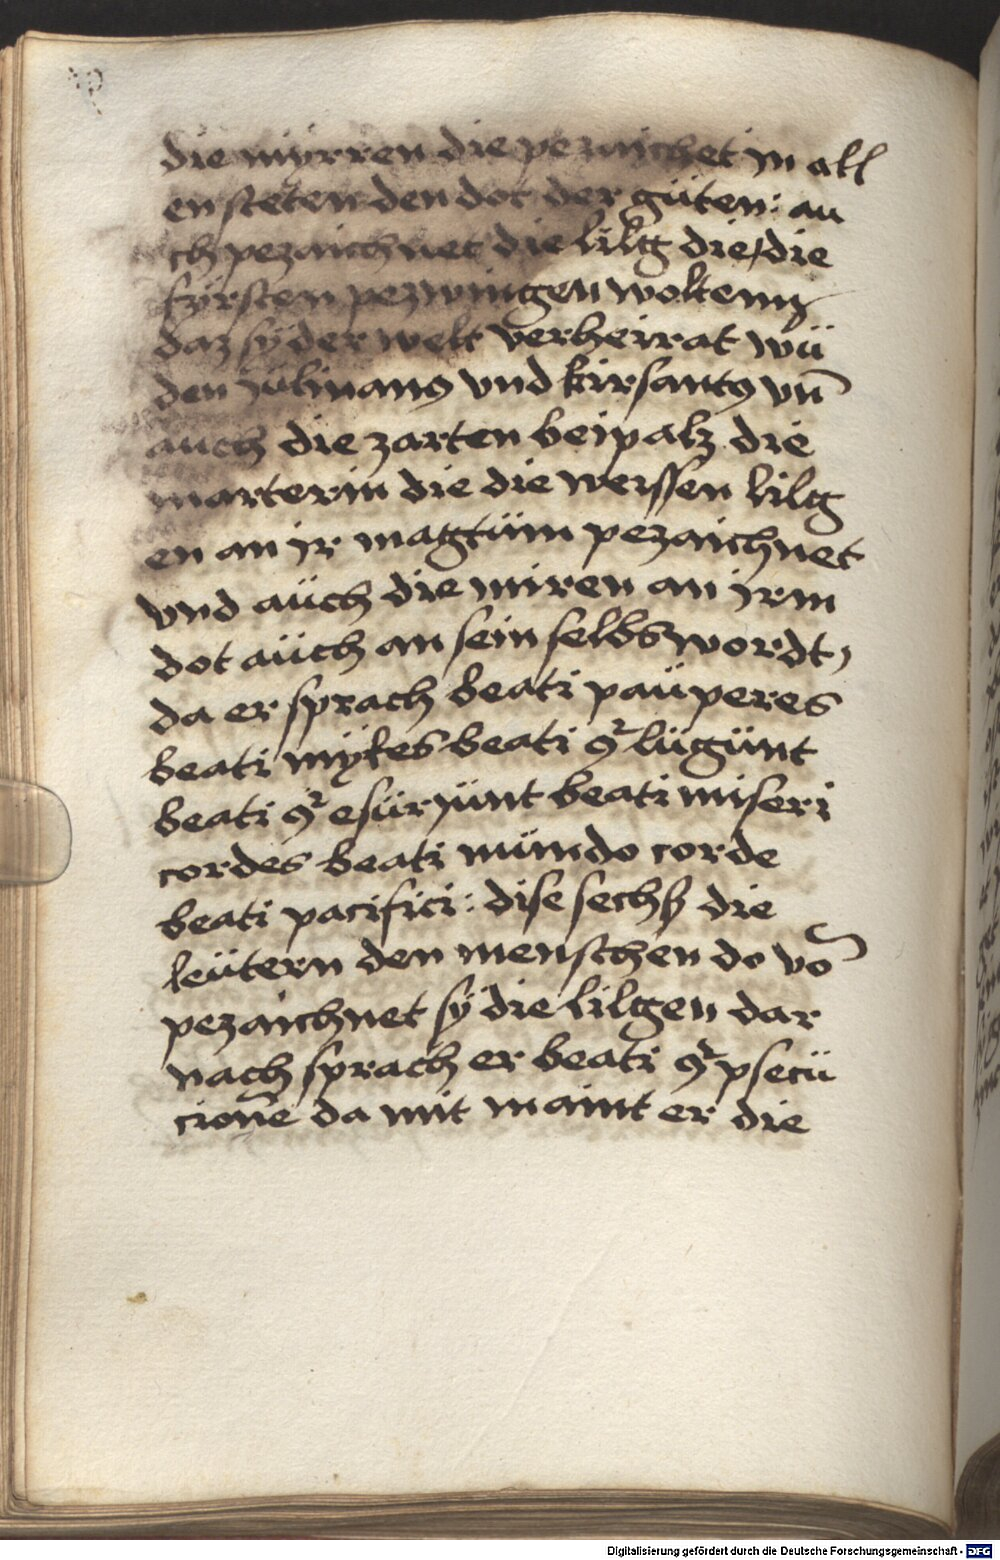 die myrren die pezaichet in all
en steten den dot der güten: au
ch pezaichnet die lilg die / die
fyrsten pezwingen wolten
daz sÿ der welt verheirat wü
den julinang vnd kirsantg vn̄
auch die zarten beispalz die
marterin die die weissen lilg
en an jr magtüm pezaichnet
vnd aüch die miren an jrm
dot aüch an sein selbs wordt,
da er sprach beati paüperes
beati mÿtes beati q lügünt
beati q esürjünt beati miseri
cordes beati mündo corde
beati pacifici: dise sechß die
leütern den menschen do vō
pezaichnet sÿ die lilgen dar
nach sprach er beati q psecü
cione̅ da mit maint er die
Digitalisierung gefördert durch die Deutsche Forschungsgemeinschaft - DFG